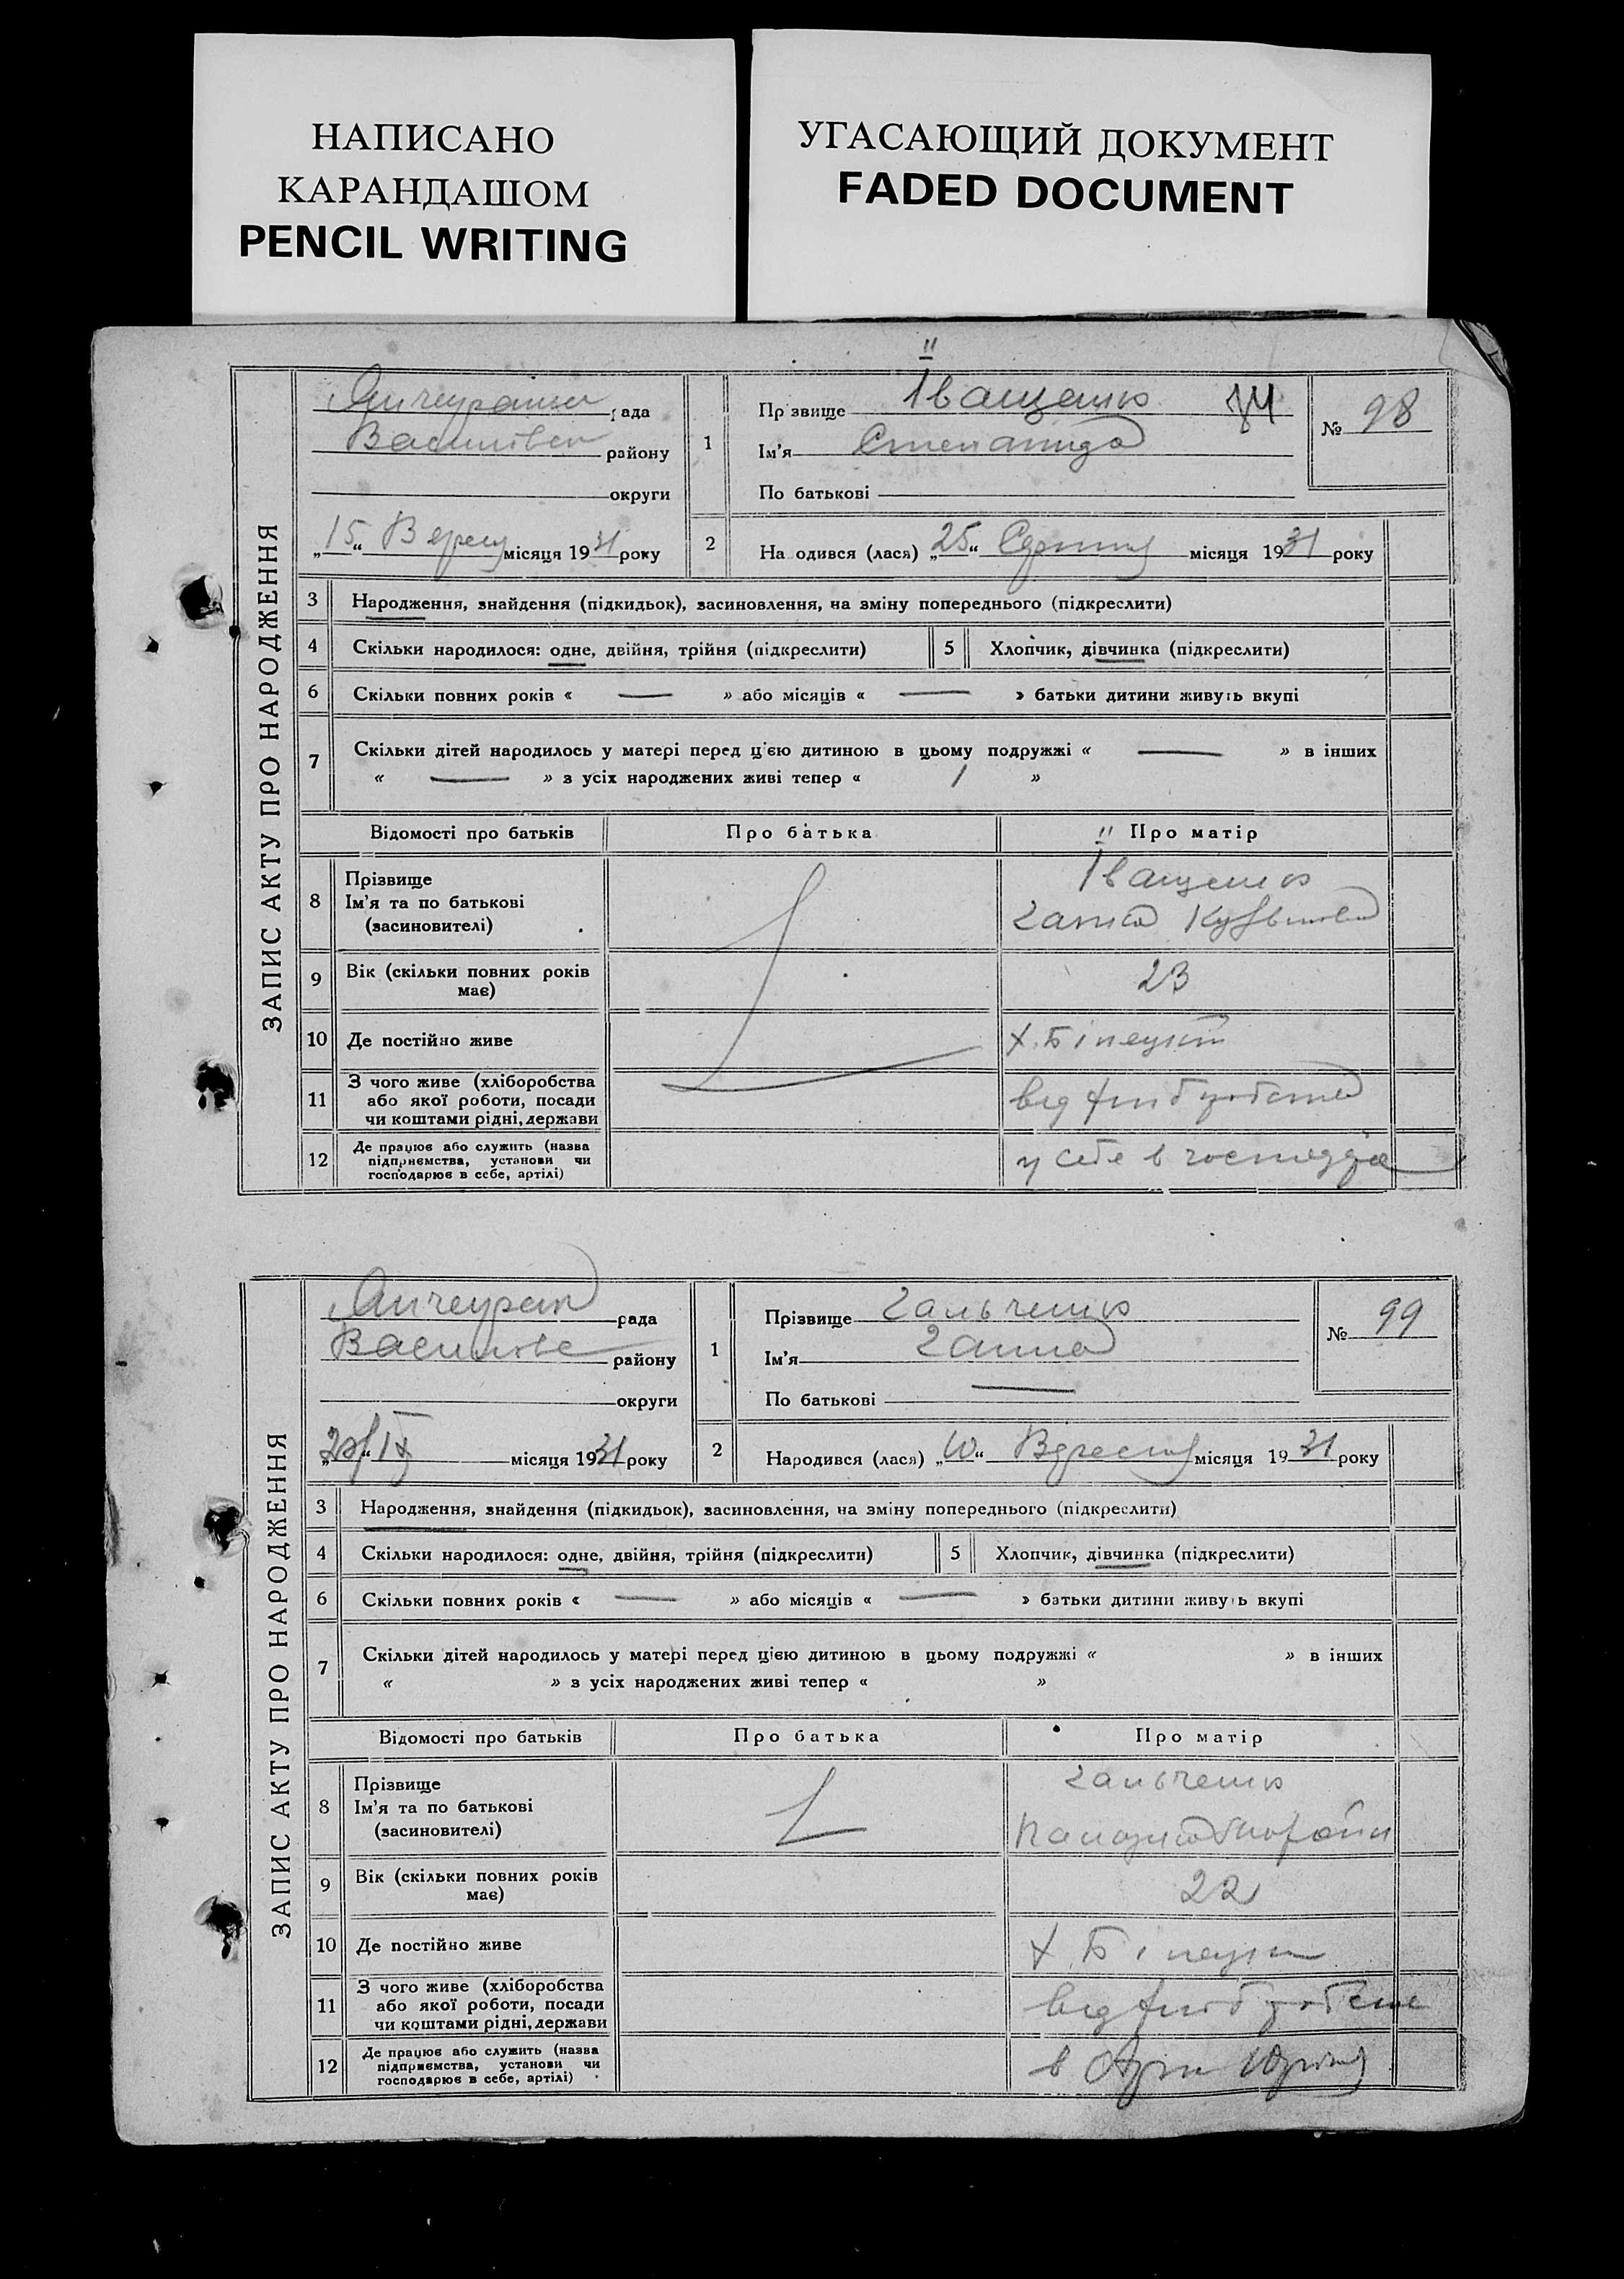 НАПИСАНО
КАРАНДАШОМ
PENCIL WRITING
УГАСАЮЩИЙ ДОКУМЕНТ
FADED DOCUMENT
ЗАПИС АКТУ ПРО НАРОДЖЕННЯ
рада
району
округи
„15“ місяця 1931 року
1
Прізвище Іващенко
Ім'я Степанида
По батькові
№ 98
2 На одився (лася) „25“ Серпня місяця 1931 року
3 Народження, знайдення (підкидьок), засиновлення, на зміну попереднього (підкреслити)
4 Скільки народилося: одне, двійня, трійня (підкреслити) 5 Хлопчик, дівчинка (підкреслити)
6 Скільки повних років « — » або місяців « — » батьки дитини живуть вкупі
7 Скільки дітей народилось у матері перед цією дитиною в цьому подружжі « — » в інших
« — » з усіх народжених живі тепер « 1 »
Відомості про батьків Про батька Про матір
8 Прізвище
Ім'я та по батькові
(засиновителі)
Іващенко
9 Вік (скільки повних років
має)
23
10 Де постійно живе
11 З чого живе (хліборобства
або якої роботи, посади
чи коштами рідні, держави
від хліборобства
12 Де працює або служить (назва
підприємства, установи чи
господарює в себе, артілі)
у себе в
ЗАПИС АКТУ ПРО НАРОДЖЕННЯ
рада
району
округи
IX місяця 1931 року
1
Прізвище Гальченко
Ім'я Ганна
По батькові —
№ 99
2 Народився (лася) „10“ Вересня місяця 1931 року
3 Народження, знайдення (підкидьок), засиновлення, на зміну попереднього (підкреслити)
4 Скільки народилося: одне, двійня, трійня (підкреслити) 5 Хлопчик, дівчинка (підкреслити)
6 Скільки повних років « — » або місяців « — » батьки дитини живуть вкупі
7 Скільки дітей народилось у матері перед цією дитиною в цьому подружжі « » в інших
« » з усіх народжених живі тепер « »
Відомості про батьків Про батька Про матір
8 Прізвище
Ім'я та по батькові
(засиновителі)
Гальченко
9 Вік (скільки повних років
має)
22
10 Де постійно живе
11 З чого живе (хліборобства
або якої роботи, посади
чи коштами рідні, держави
від хліборобства
12 Де працює або служить (назва
підприємства, установи чи
господарює в себе, артілі)